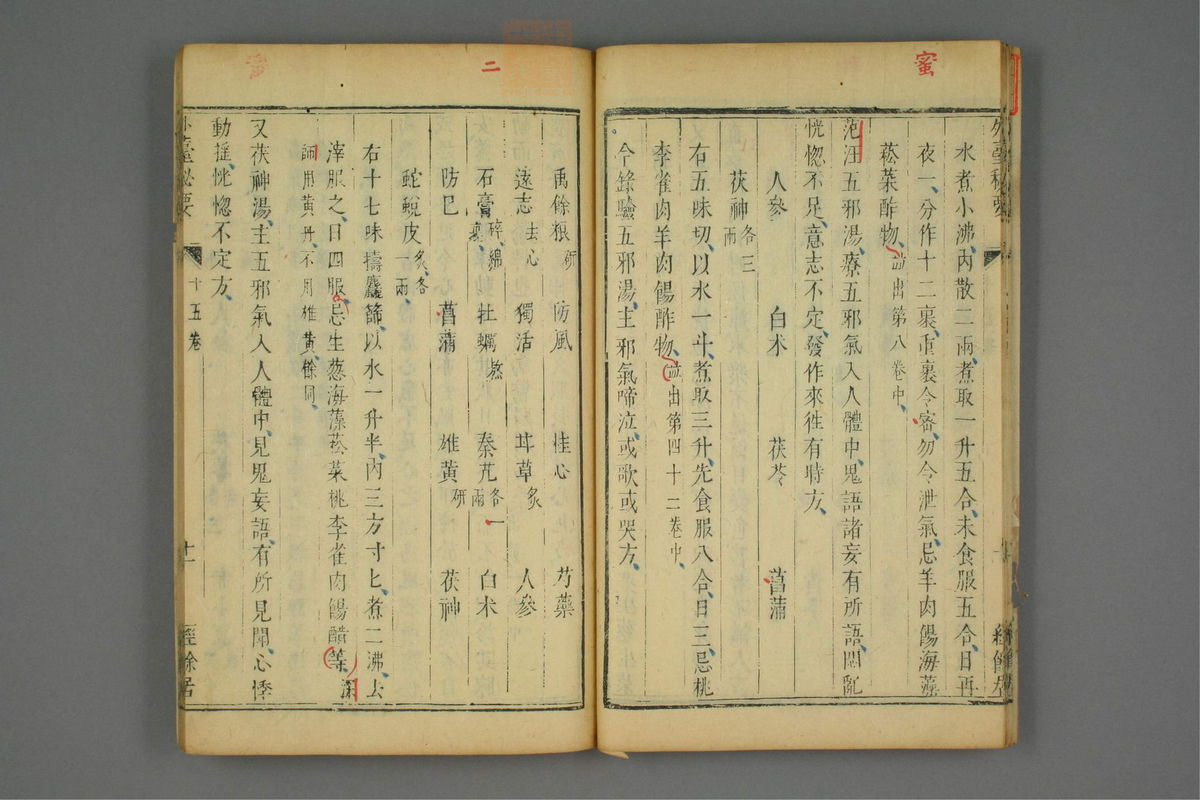 蜜
水煮小沸內散二兩煮取一升五合未食服五合日再
夜一分作十二裹重裹令密勿令泄氣忌羊肉餳海藻
菘菜酢物並出第八卷中
范汪五邪湯療五邪氣入人體中鬼語諸妄有所語悶亂
恍惚不足意志不定發作來徃有時方
人參 白朮 茯苓 菖蒲
茯神各三兩
右五味切以水一斗煮取三升先食服八合日三忌桃
李雀肉羊肉餳酢物並出第四十二卷中
今錄驗五邪湯主邪氣啼泣或歌或哭方
二
禹餘粮研 防風 桂心 芍藥
遠志去心 獨活 甘草炙 人參
石膏碎綿裹 牡蠣熬 秦艽各一兩 白朮
防巳 菖蒲 雄黃研 茯神
蛇蛻皮炙各一兩
右十七味擣麤篩以水一升半內三方寸匕煮二沸去
滓服之日四服忌生葱海藻菘菜桃李雀肉餳醋等深
師用黃丹不用雄黃餘同
又茯神湯主五邪氣入人體中見鬼妄語有所見聞心悸
動搖恍惚不定方
外臺秘要 十五卷 十一 經餘居